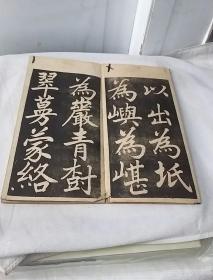 以出為坻
為嶼為嵁
為巖青樹
翠蔓蒙絡